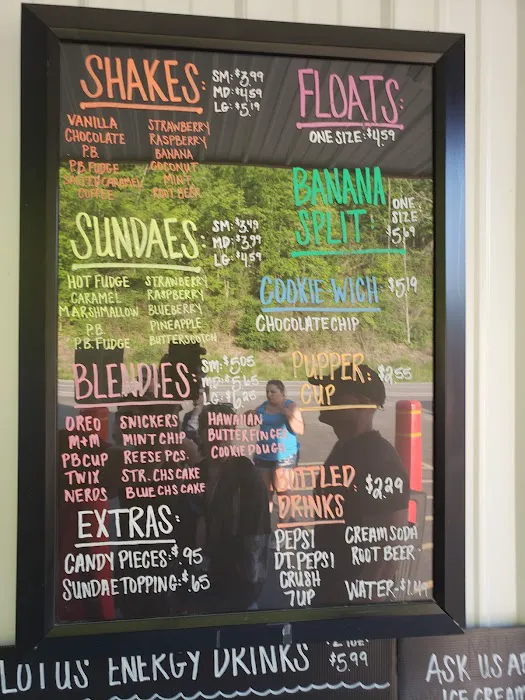 SHAKES:
SM: $3.99
MD: $4.59
LG: $5.19
VANILLA
CHOCOLATE
P.B.
P.B. FUDGE
SALTED CARAMEL
COFFEE
STRAWBERRY
RASPBERRY
BANANA
COCONUT
MINT
ROOT BEER
FLOATS:
ONE SIZE: $4.59
BANANA
SPLIT:
ONE
SIZE
$5.69
SUNDAES:
SM: $3.49
MD: $3.99
LG: $4.59
HOT FUDGE
CARAMEL
MARSHMALLOW
P.B.
P.B. FUDGE
STRAWBERRY
RASPBERRY
BLUEBERRY
PINEAPPLE
BUTTERSCOTCH
COOKIE WICH $5.19
CHOCOLATE CHIP
BLENDIES:
SM: $5.05
MD: $5.65
LG: $6.25
OREO
M+M
PB CUP
TWIX
NERDS
SNICKERS
MINT CHIP
REESE PCS.
STR. CHSCAKE
BLUE CHSCAKE
HAWAIIAN
BUTTERFINGER
COOKIE DOUGH
PUPPER
CUP
$2.55
EXTRAS:
CANDY PIECES: $.95
SUNDAE TOPPING: $.65
BOTTLED
DRINKS
$2.29
PEPSI
DT. PEPSI
CRUSH
7UP
CREAM SODA
ROOT BEER
WATER-
LOTUS ENERGY DRINKS
$5.99
ASK US